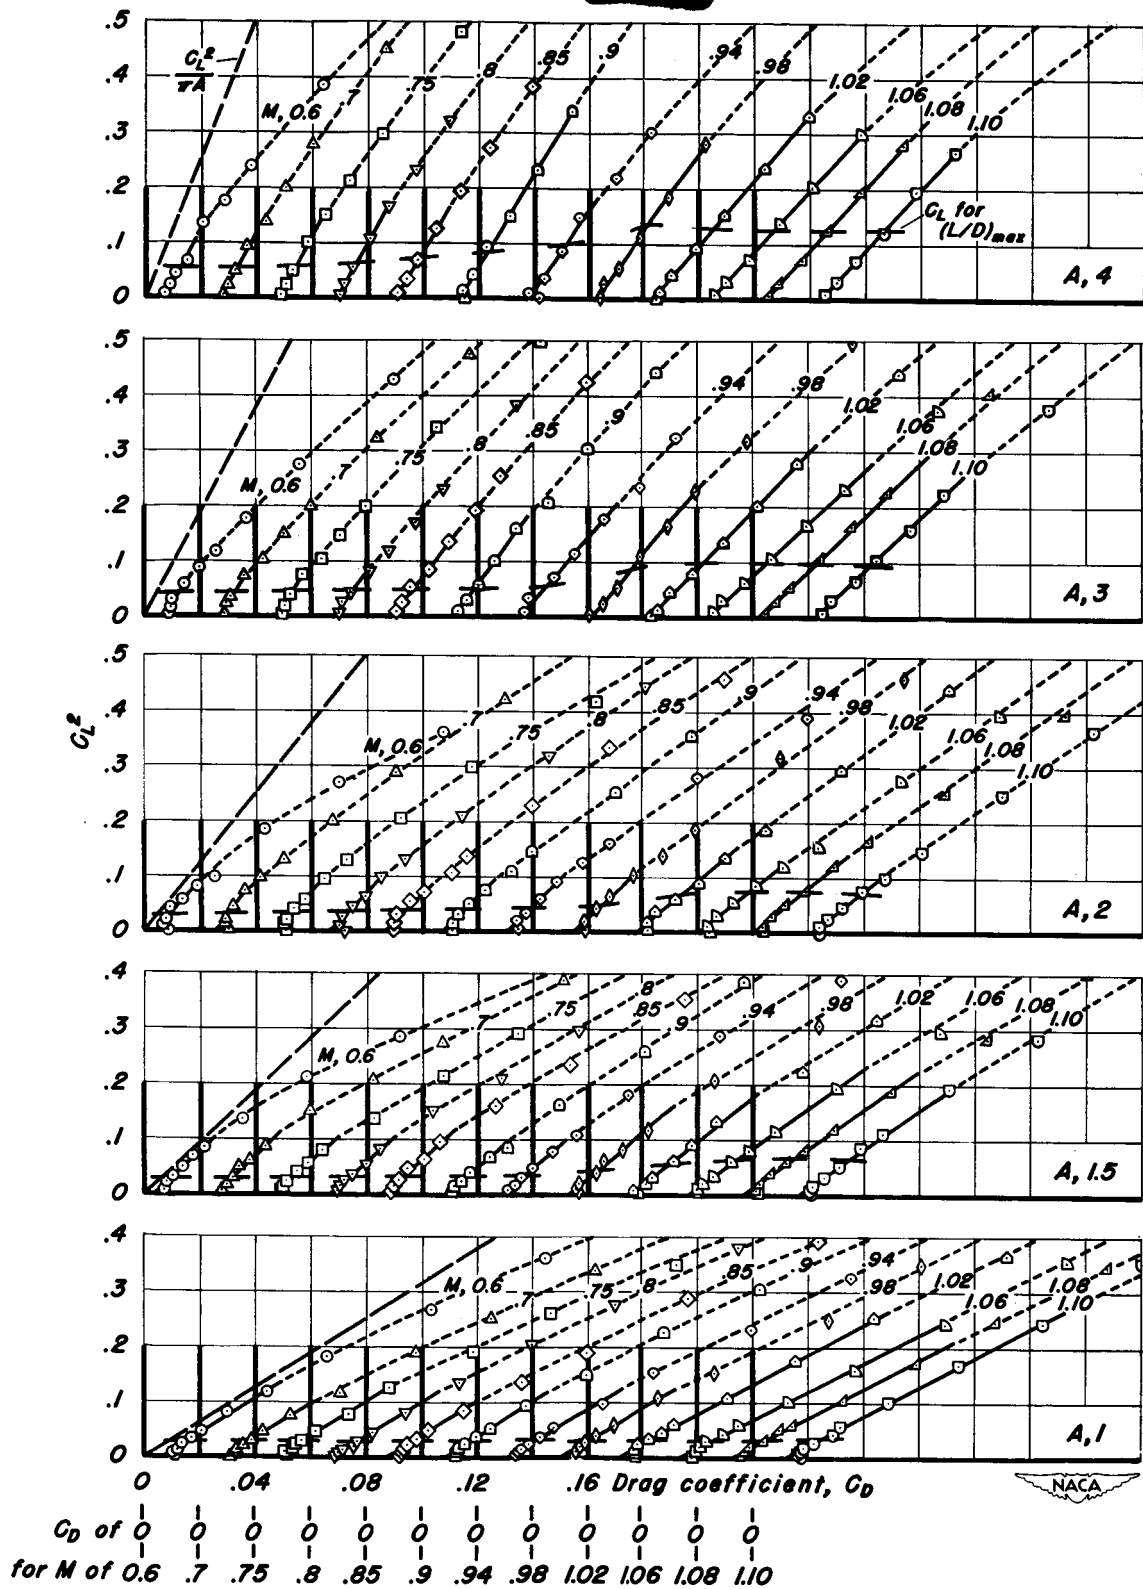 .5
.4
.3
.2
.1
0
C_L^2
πA
M, 0.6
.7
.75
.8
.85
.9
.94
.98
1.02
1.06
1.08
1.10
C_L for
(L/D)max
A, 4
.5
.4
.3
.2
.1
0
M, 0.6
.7
.75
.8
.85
.9
.94
.98
1.02
1.06
1.08
1.10
A, 3
C_L^2
.5
.4
.3
.2
.1
0
M, 0.6
.7
.75
.8
.85
.9
.94
.98
1.02
1.06
1.08
1.10
A, 2
.4
.3
.2
.1
0
M, 0.6
.7
.75
.8
.85
.9
.94
.98
1.02
1.06
1.08
1.10
A, 1.5
.4
.3
.2
.1
0
M, 0.6
.7
.75
.8
.85
.9
.94
.98
1.02
1.06
1.08
1.10
A, 1
0 .04 .08 .12 .16 Drag coefficient, C_D
NACA
C_D of 0 0 0 0 0 0 0 0 0 0 0 0
for M of 0.6 .7 .75 .8 .85 .9 .94 .98 1.02 1.06 1.08 1.10